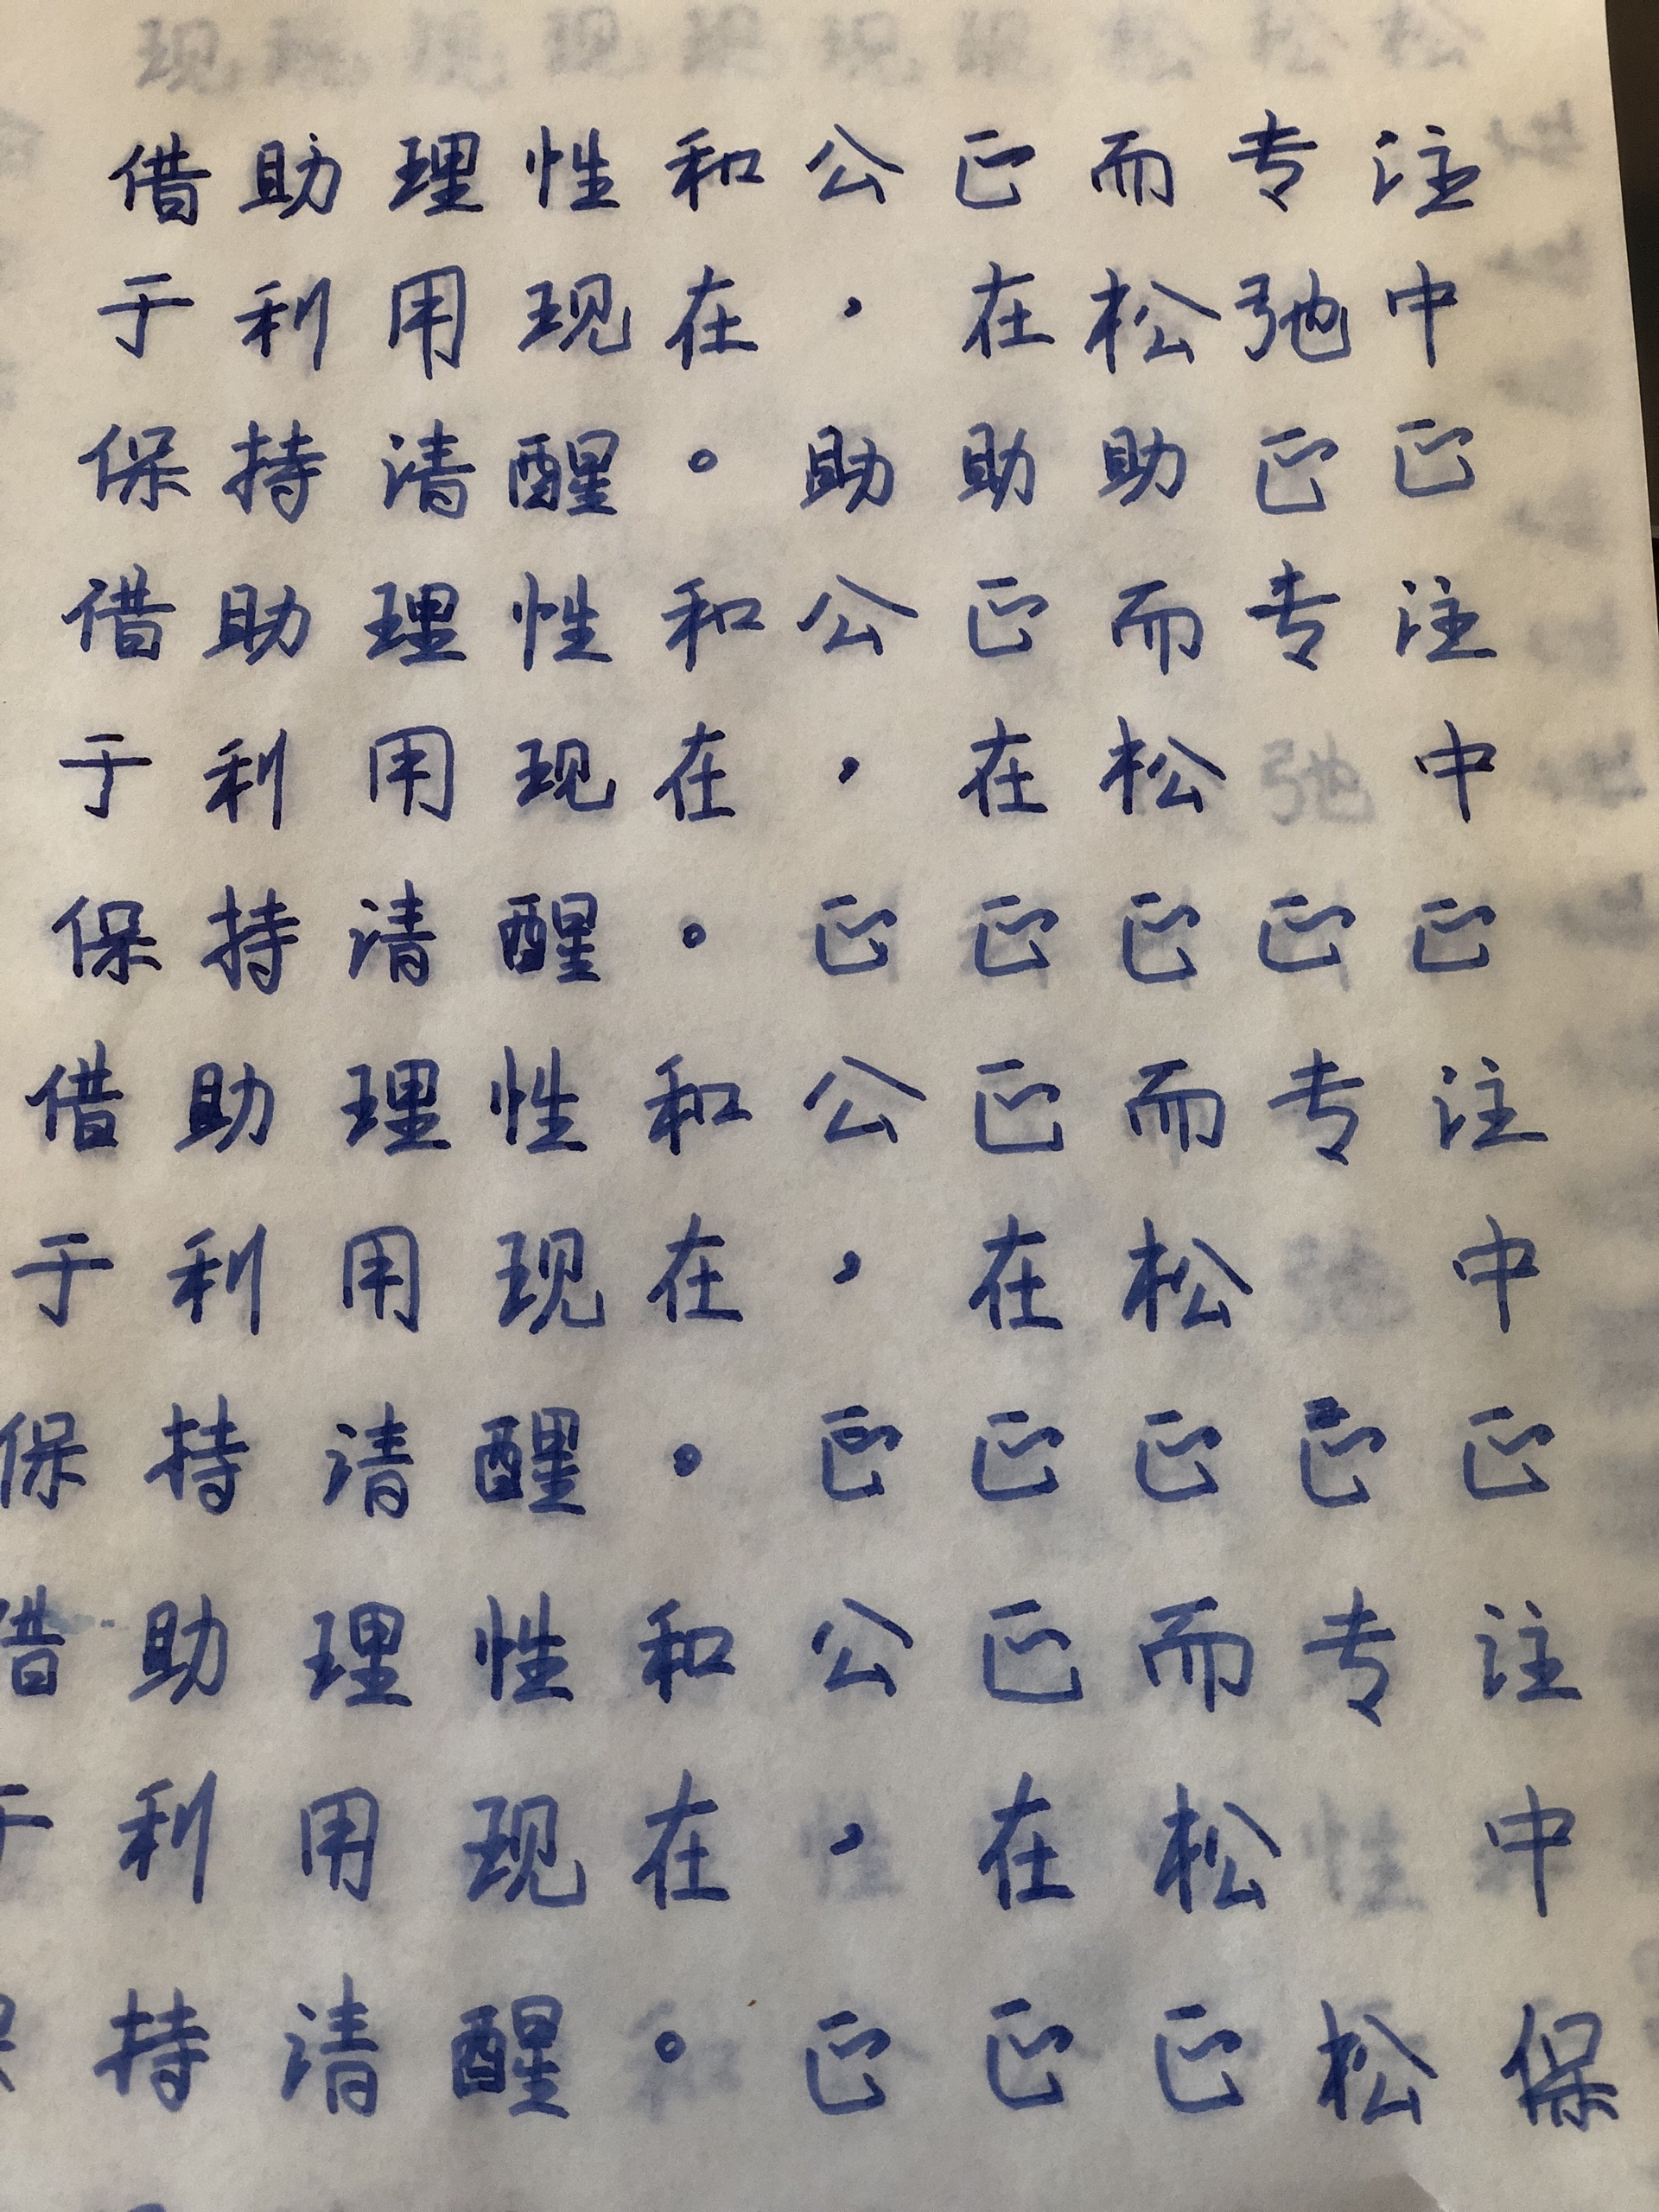 借助理性和公正而专注
于利用现在，在松弛中
保持清醒。助助助正正
借助理性和公正而专注
于利用现在，在松弛中
保持清醒。正正正正正
借助理性和公正而专注
于利用现在，在松 中
保持清醒。正正正正正
借助理性和公正而专注
于利用现在，在松 中
保持清醒。正正正松保